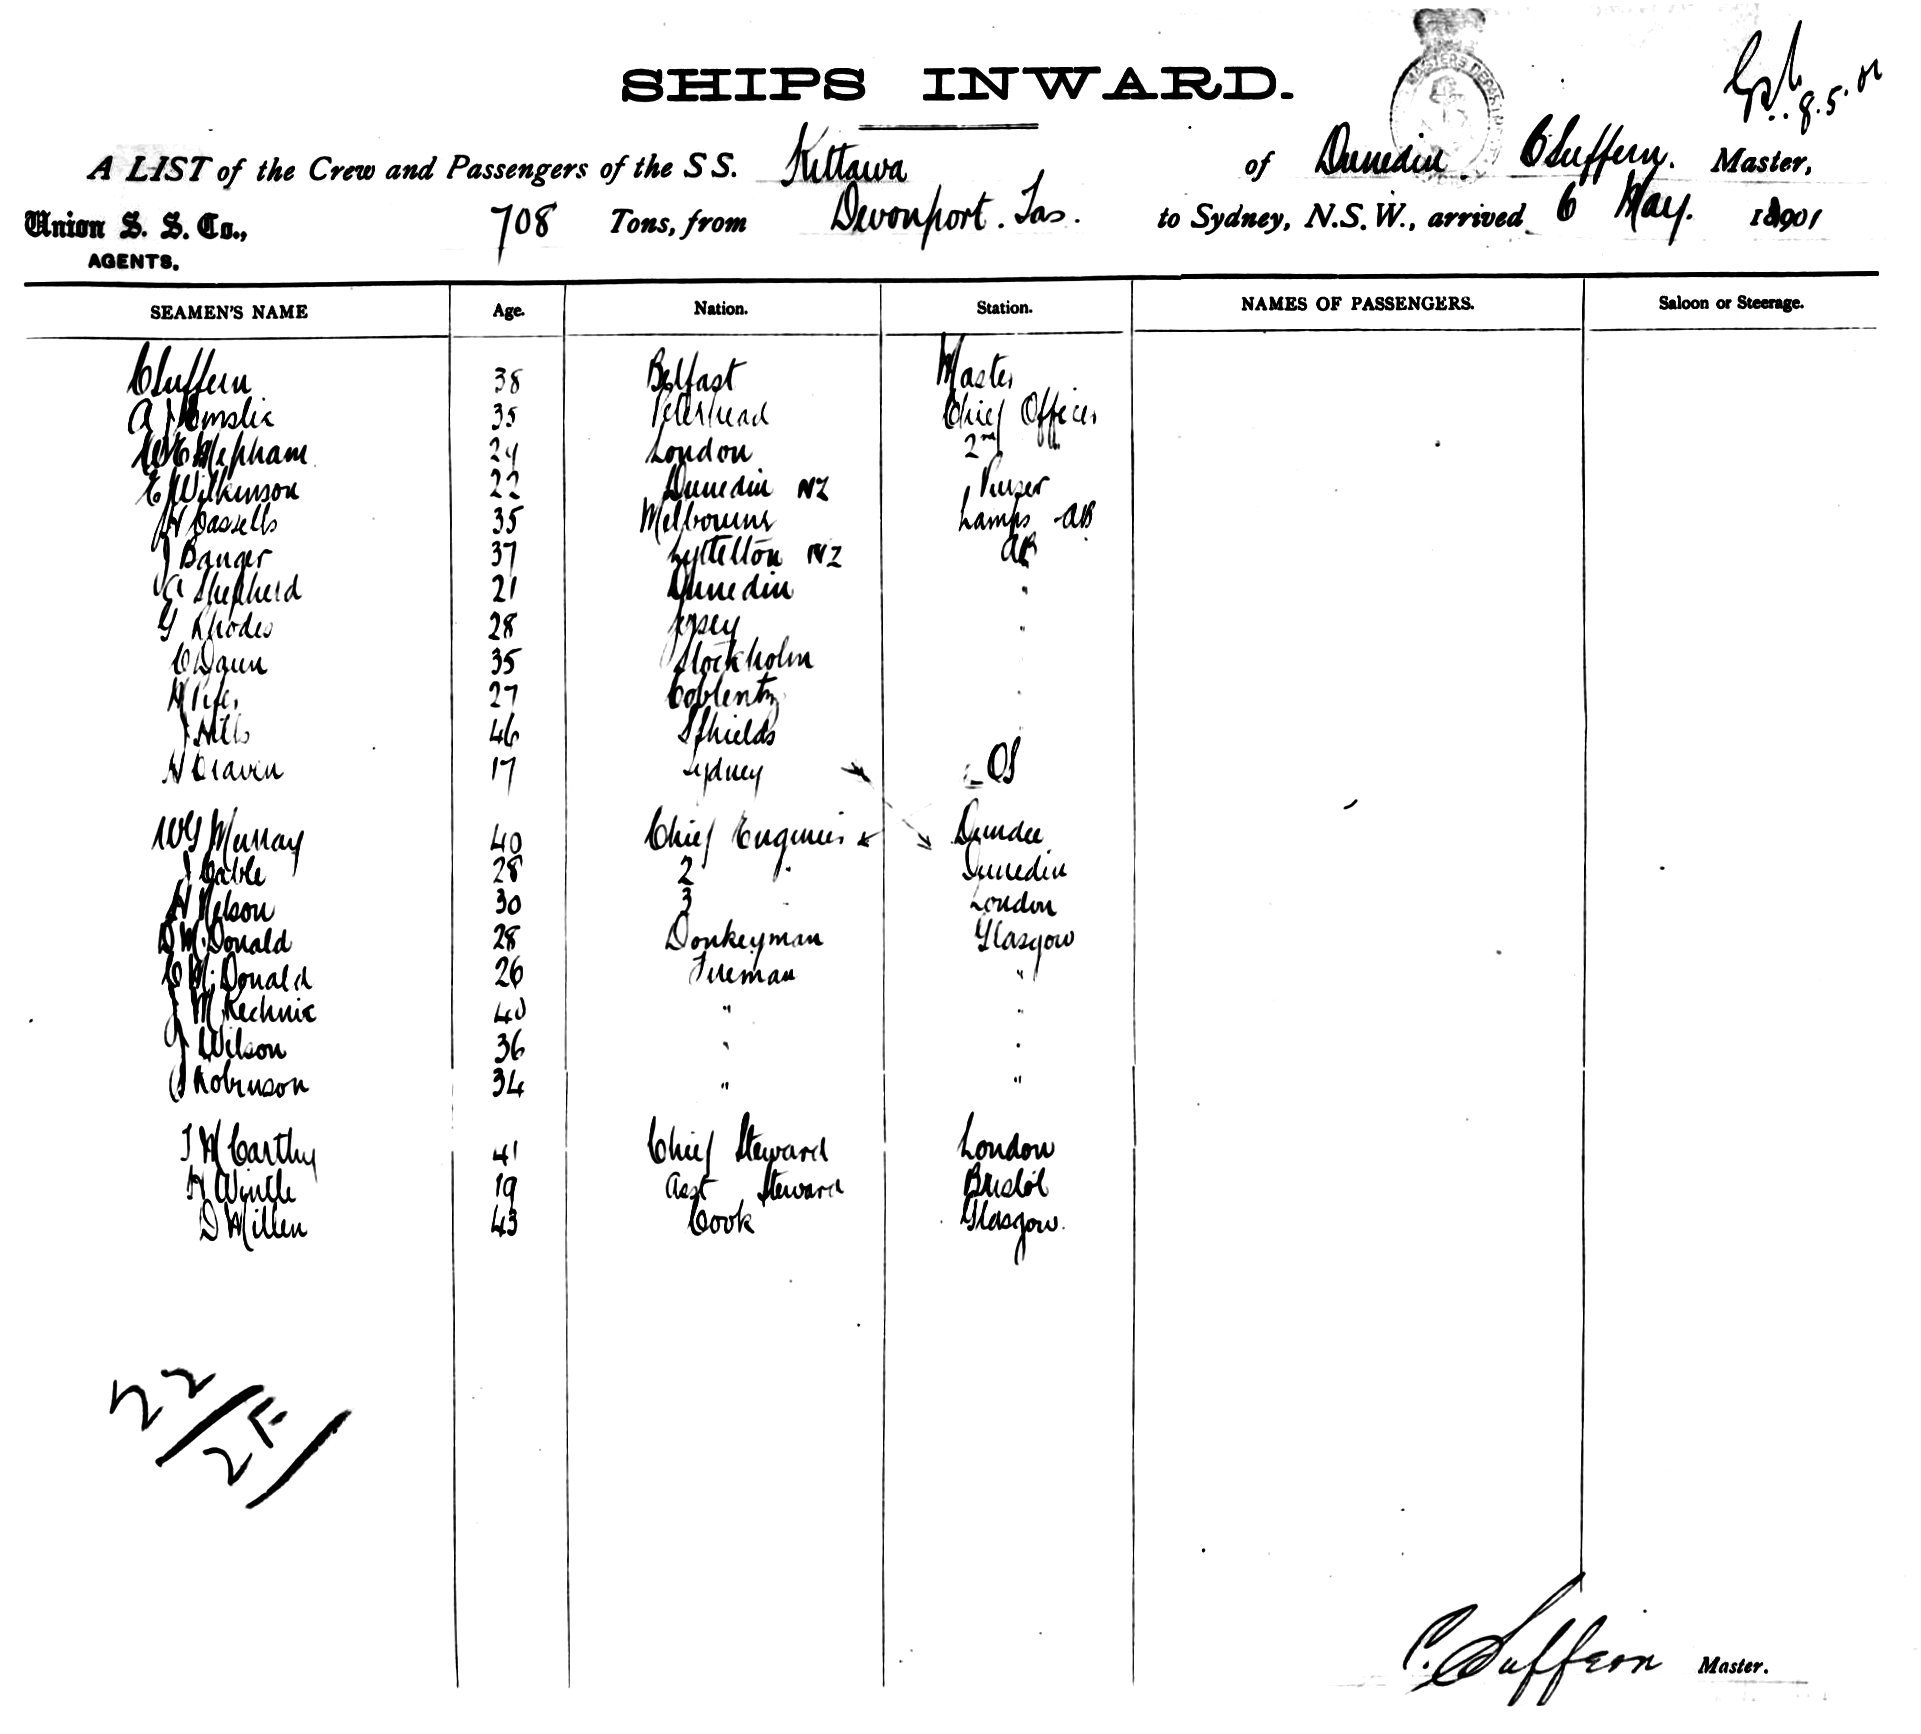 SHIPS INWARD.
MASTERS DEPART
8.5.01
A LIST of the Crew and Passengers of the S S. Kittawa of Dunedin C Suffern. Master,
Union S. S. Co., 708 Tons, from Devonport. Tas. to Sydney, N.S.W., arrived 6 May. 1901
AGENTS.
SEAMEN'S NAME Age. Nation. Station. NAMES OF PASSENGERS. Saloon or Steerage.
C Suffern 38 Belfast Master
A J Emslie 35 Peterhead Chief Officer
Mepham 24 London 2nd "
E Wilkinson 22 Dunedin NZ Purser
H Cassells 35 Melbourne Lamps AB
J Banger 37 Lyttelton NZ AB
Shepherd 21 Dunedin "
G Rhodes 28 Jersey "
C Daun 35 Stockholm
H 27 Coblentz "
J 46 S Shields "
H Craven 17 Sydney OS
W G Murray 40 Chief Engineer Dundee
J Cable 28 2 " Dunedin
H Nelson 30 3 " London
D McDonald 28 Donkeyman Glasgow
C McDonald 26 Fireman "
J McKechnie 40 " "
J Wilson 36 " "
J Robinson 34 " "
J McCarthy 41 Chief Steward London
H Wintle 19 Asst Steward Bristol
D Millen 43 Cook Glasgow.
22
C. Suffern Master.